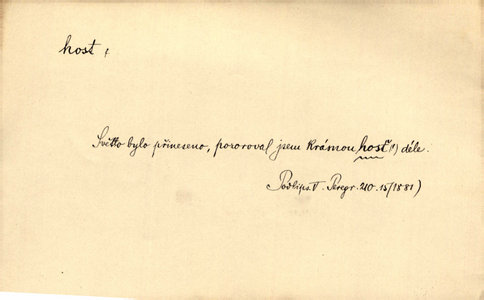 hosť,
Světlo bylo přineseno, pozoroval jsem krásnou hosť(!) déle.
Podlips. V. Peregr. 210. 15/1881)